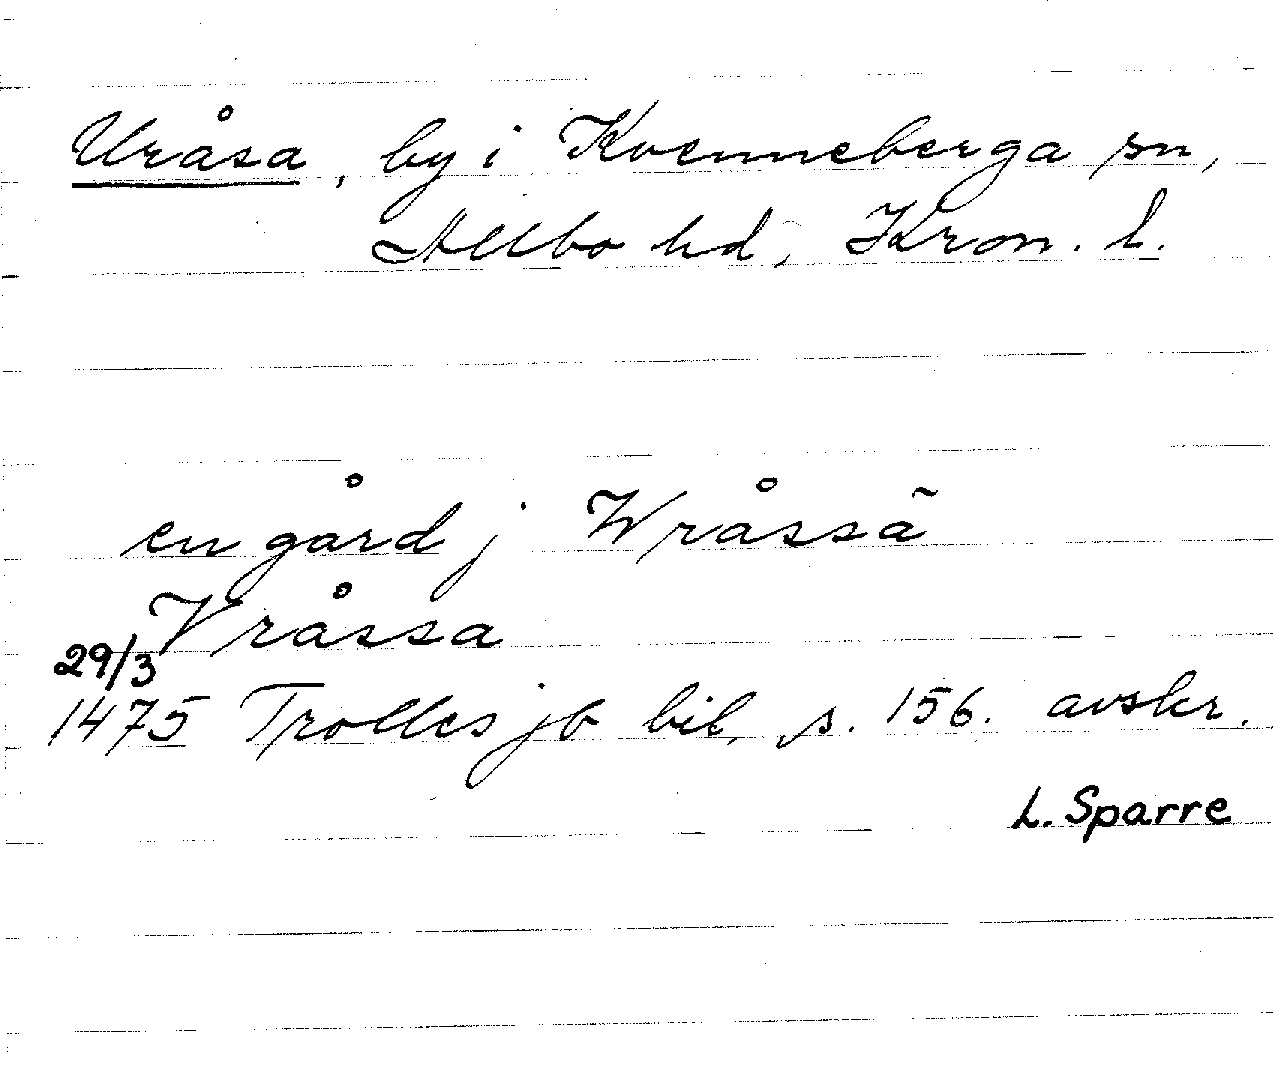 Uråsa, by i Kvenneberga sn,
Allbo hd, Kron. l.
en gård j Wråssã
Vråssa
29/3
1475 Trolles jb bil. s. 156. avskr.
L. Sparre